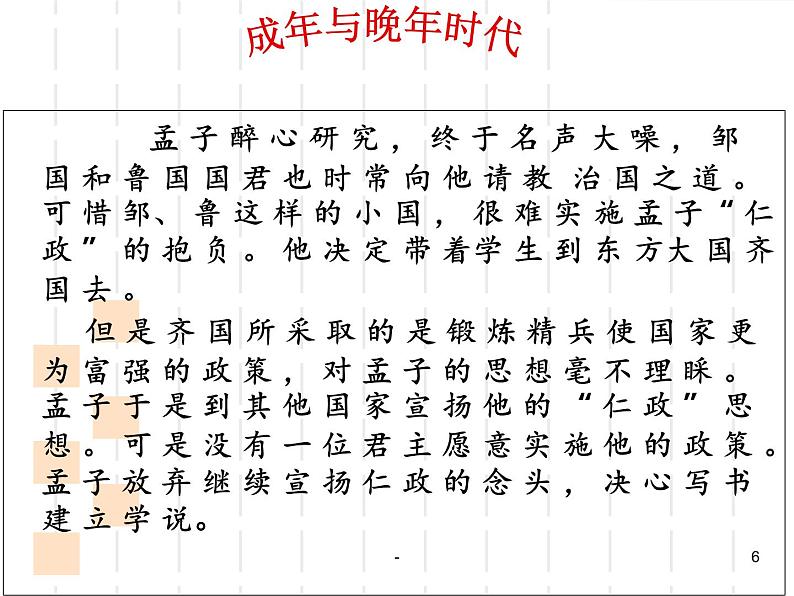 成年与晚年时代
孟子醉心研究，终于名声大噪，邹
国和鲁国国君也时常向他请教 治国之道。
可惜邹、鲁这样的小国，很难实施孟子“仁
政”的抱负。他决定带着学生到东方大国齐
国去。
但是齐国所采取的是锻炼精兵使国家更
为富强的政策，对孟子的思想毫不理睬。
孟子于是到其他国家宣扬他的“仁政”思
想。可是没有一位君主愿意实施他的政策。
孟子放弃继续宣扬仁政的念头，决心写书
建立学说。
-
6